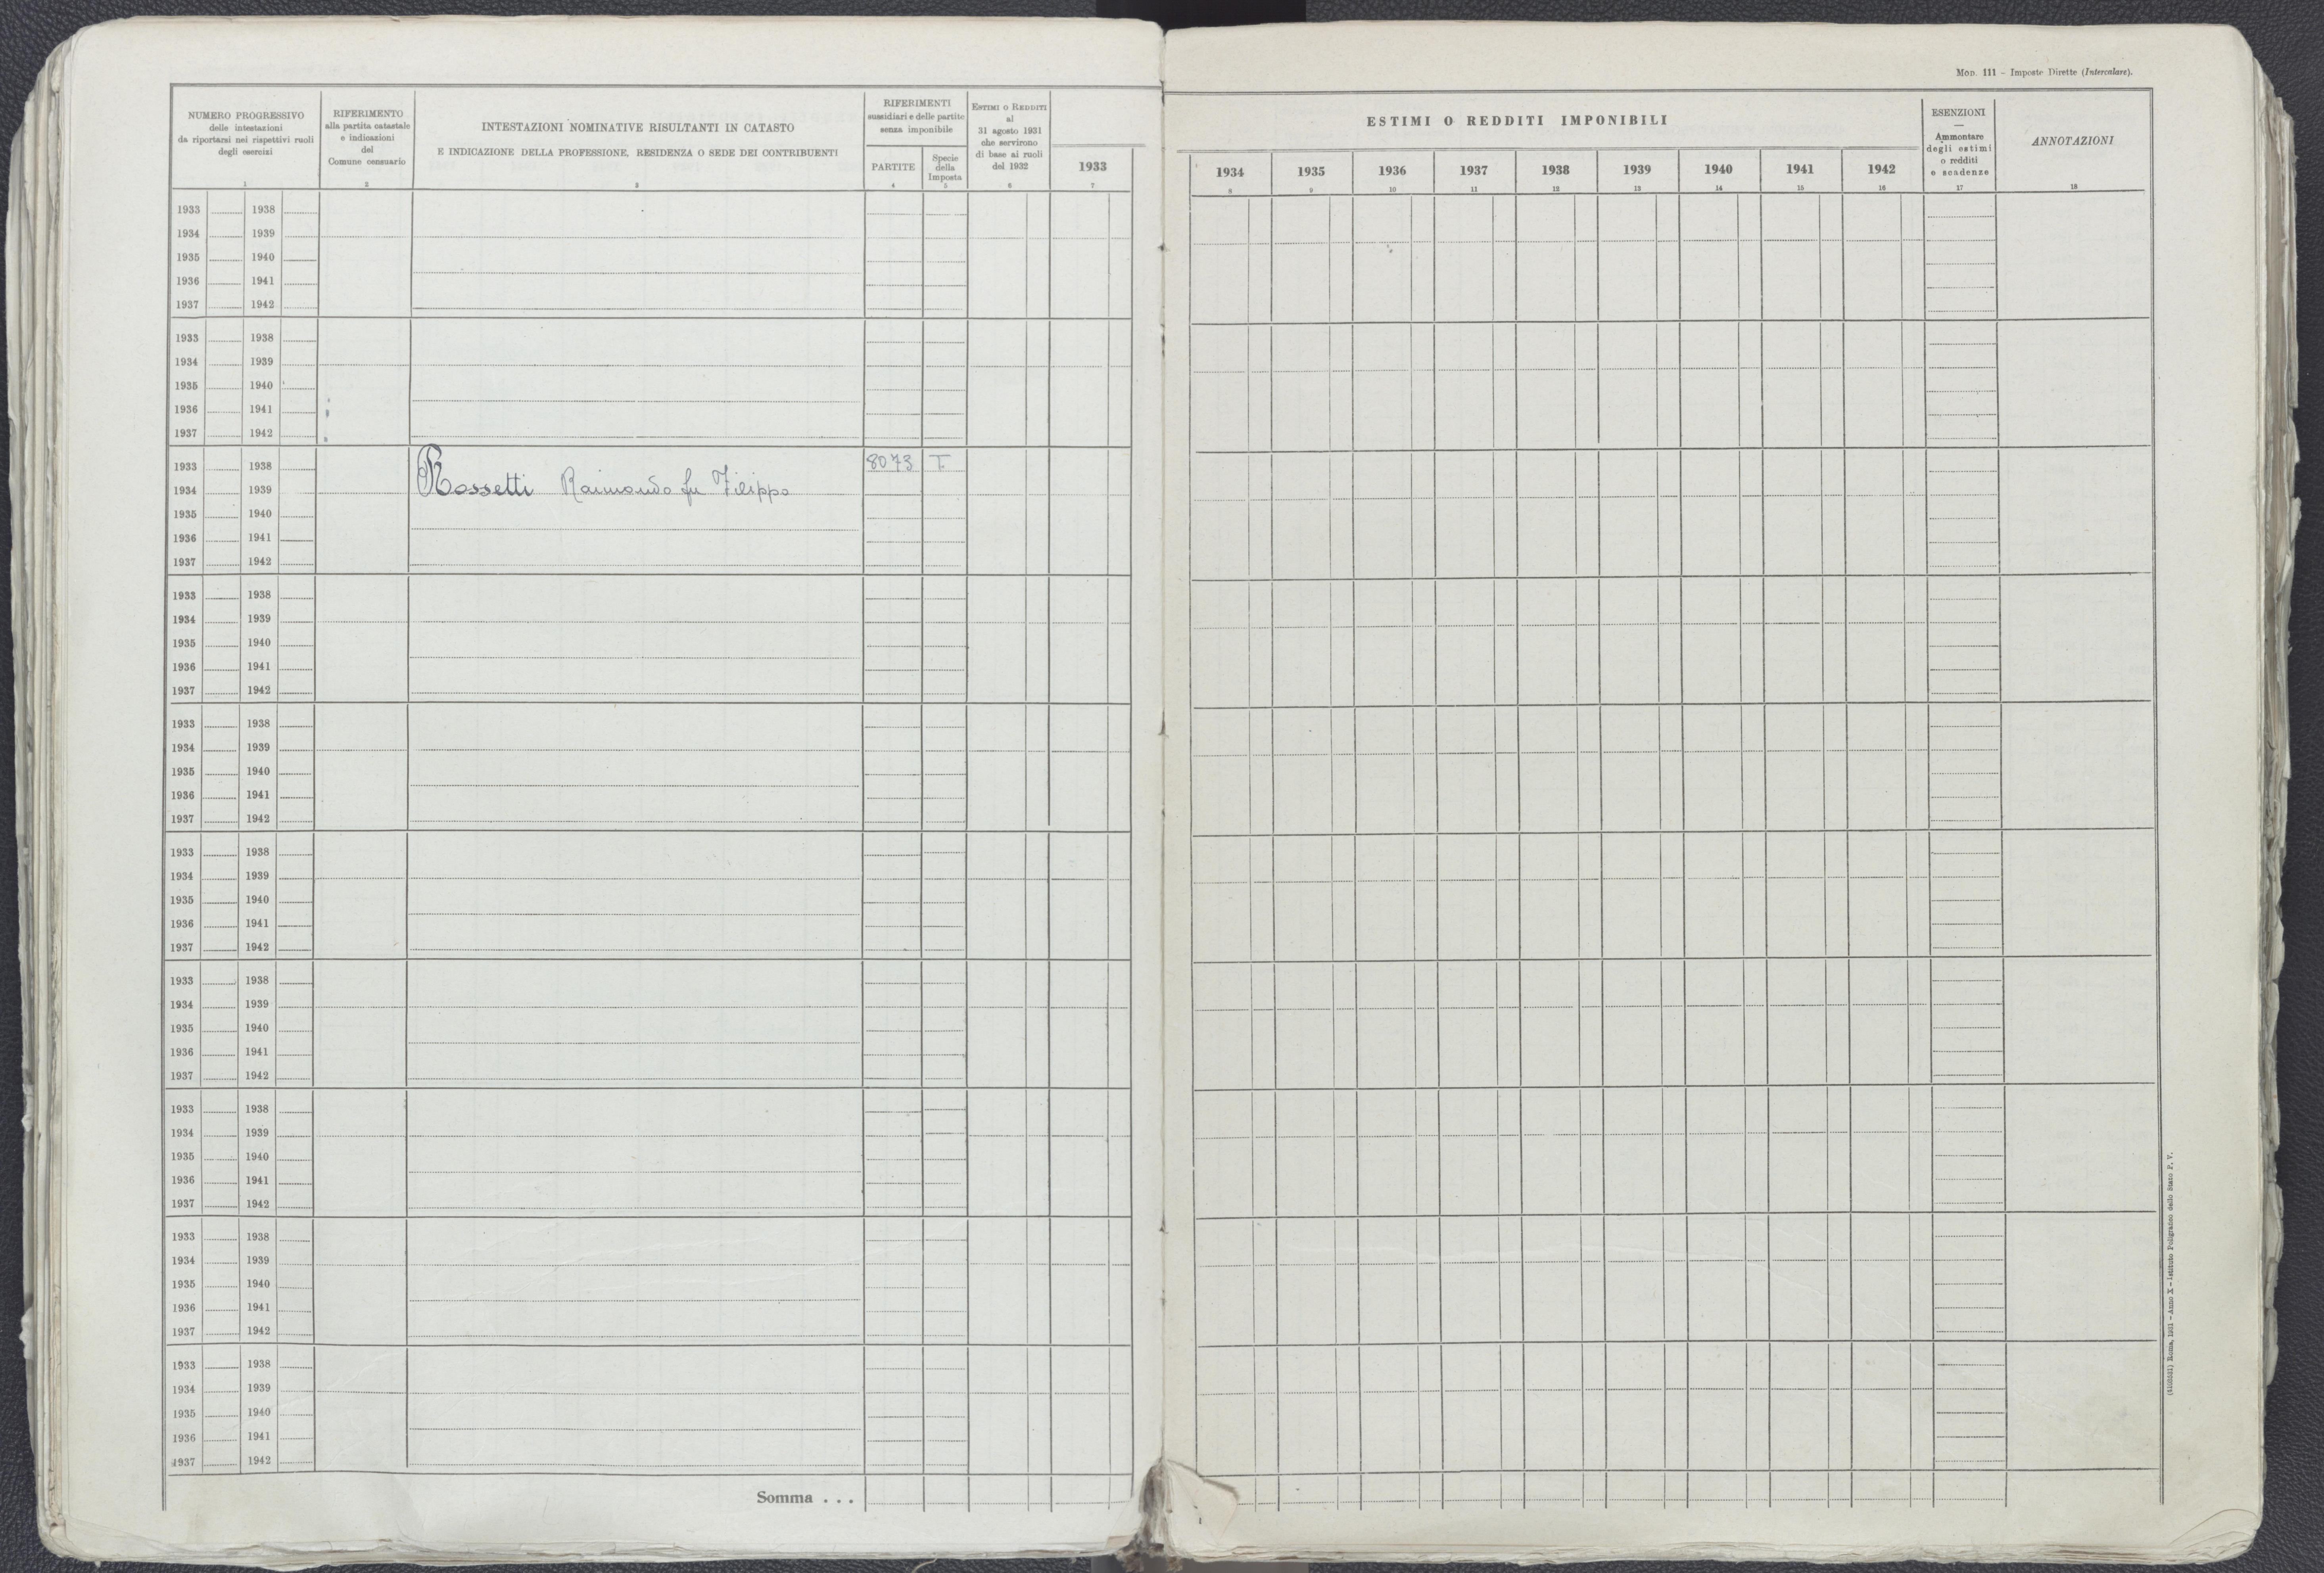 Mod. 111 - Imposte Dirette (Intercalare).
NUMERO PROGRESSIVO
delle intestazioni
da riportarsi nei rispettivi ruoli
degli esercizi
1
RIFERIMENTO
alla partita catastale
e indicazioni
del
Comune censuario
2
INTESTAZIONI NOMINATIVE RISULTANTI IN CATASTO
E INDICAZIONE DELLA PROFESSIONE, RESIDENZA O SEDE DEI CONTRIBUENTI
3
RIFERIMENTI
sussidiari e delle partite
senza imponibile
PARTITE
4
Specie
della
Imposta
5
ESTIMI O REDDITI
al
31 agosto 1931
che servirono
di base ai ruoli
del 1932
6
1933
7
ESTIMI O REDDITI IMPONIBILI
1934 1935 1936 1937 1938 1939 1940 1941 1942
8 9 10 11 12 13 14 15 16
ESENZIONI
—
Ammontare
degli estimi
o redditi
e scadenze
17
ANNOTAZIONI
18
1933 1938
1934 1939
1935 1940
1936 1941
1937 1942
1933 1938
1934 1939
1935 1940
1936 1941
1937 1942
1933 1938 8073 T.
1934 1939 Rossetti Raimondo fu Filippo
1935 1940
1936 1941
1937 1942
1933 1938
1934 1939
1935 1940
1936 1941
1937 1942
1933 1938
1934 1939
1935 1940
1936 1941
1937 1942
1933 1938
1934 1939
1935 1940
1936 1941
1937 1942
1933 1938
1934 1939
1935 1940
1936 1941
1937 1942
1933 1938
1934 1939
1935 1940
1936 1941
1937 1942
1933 1938
1934 1939
1935 1940
1936 1941
1937 1942
1933 1938
1934 1939
1935 1940
1936 1941
1937 1942
Somma . . .
Roma, 1931 - Anno X - Istituto Poligrafico dello Stato P. V.